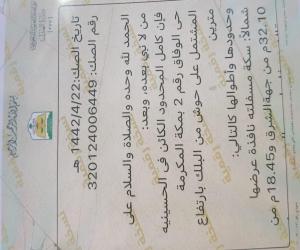 رقم الصك: 320124006449
تاريخ الصك: 1442/4/22 هـ
الحمد لله وحده والصلاة والسلام على
من لا نبي بعده، وبعد:
فإن كامل المحدود الكائن في الحسينيه
حي الوفاق رقم 2 بمكة المكرمة
المشتمل على حوش من البلك بارتفاع
مترين
وحدودها واطوالها كالتالي:
شمالا: سكة مسفلته نافذة عرضها
32.10م من جهة الشرق و18.45م من